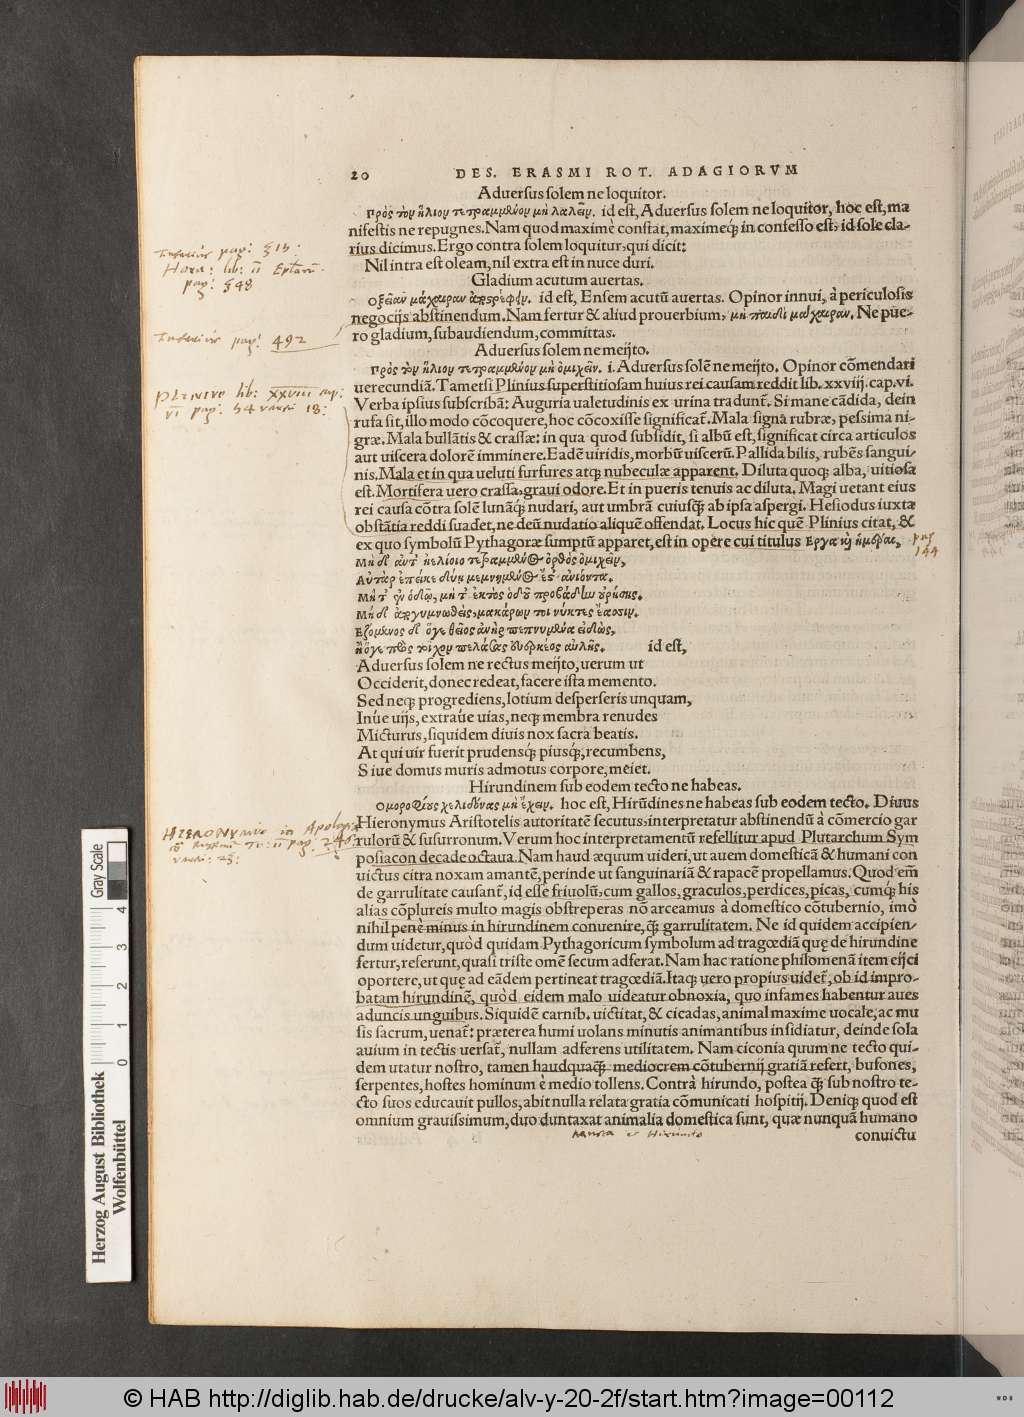 20 DES. ERASMI ROT. ADAGIORVM
Aduersus solem ne loquitor.
Πρὸς τὸν ἥλιον τετραμμένον μὴ λαλεῖν. id est, Aduersus solem ne loquitor, hoc est, ma
nifestis ne repugnes. Nam quod maximè constat, maximeq́ in confesso est, id sole cla-
rius dicimus. Ergo contra solem loquitur, qui dicit:
Nil intra est oleam, nil extra est in nuce duri.
Gladium acutum auertas.
Οξεῖαν μάχαιραν ἀποστρέφειν. id est, Ensem acutū auertas. Opinor innui, à periculosis
negocijs abstinendum. Nam fertur & aliud prouerbium, μὴ παιδὶ μάχαιραν. Ne pue-
ro gladium, subaudiendum, committas.
Aduersus solem ne meijto.
Πρὸς τὸν ἥλιον τετραμμένον μὴ ὀμιχεῖν. i. Aduersus solē ne meijto. Opinor cōmendari
uerecundiā. Tametsi Plinius superstitiosam huius rei causam reddit lib. xxviij. cap. vi.
Verba ipsius subscribā: Auguria ualetudinis ex urina tradunt̄. Si mane cādida, dein
rufa sit, illo modo cōcoquere, hoc cōcoxisse significat̄. Mala signa rubræ, pessima ni-
græ. Mala bullātis & crassæ: in qua quod subsidit, si albū est, significat circa articulos
aut uiscera dolorē imminere. Eadē uiridis, morbū uiscerū. Pallida bilis, rubēs sangui-
nis. Mala et in qua ueluti furfures atq; nubeculæ apparent. Diluta quoq; alba, uitiosa
est. Mortifera uero crassa, graui odore. Et in pueris tenuis ac diluta. Magi uetant eius
rei causa cōtra solē lunāq́ nudari, aut umbrā cuiusq́ ab ipsa aspergi. Hesiodus iuxta
obstātia reddi suadet, ne deū nudatio aliquē offendat. Locus hic quē Plinius citat, &
ex quo symbolū Pythagoræ sumptū apparet, est in opere cui titulus Εργα καὶ ἡμέραι,
Μηδ' ἄντ' ἠελίοιο τετραμμένος ὀρθὸς ὀμιχεῖν,
Αὐτὰρ ἐπεί κε δύῃ μεμνημένος ἔς τ' ἀνιόντα.
Μήτ' ἐν ὁδῷ, μήτ' ἐκτὸς ὁδοῦ προβάδην οὐρήσῃς.
Μηδ' ἀπογυμνωθείς, μακάρων τοι νύκτες ἔασιν.
Εζόμενος δ' ὅγε θεῖος ἀνὴρ πεπνυμένα εἰδώς,
Ἢ ὅγε πρὸς τοῖχον πελάσας εὐερκέος αὐλῆς. id est,
Aduersus solem ne rectus meijto, uerum ut
Occiderit, donec redeat, facere ista memento.
Sed neq; progrediens, lotium desperseris unquam,
Inúe uijs, extraúe uias, neq; membra renudes
Micturus, siquidem diuis nox sacra beatis.
At qui uir fuerit prudensq́ piusq́, recumbens,
Siue domus muris admotus corpore, meiet.
Hirundinem sub eodem tecto ne habeas.
Ομοροφίους χελιδόνας μὴ ἔχειν. hoc est, Hirūdines ne habeas sub eodem tecto. Diuus
Hieronymus Aristotelis autoritatē secutus, interpretatur abstinendū à cōmercio gar
rulorū & susurronum. Verum hoc interpretamentū refellitur apud Plutarchum Sym
posiacon decade octaua. Nam haud æquum uideri, ut auem domesticā & humani con
uictus citra noxam amantē, perinde ut sanguinariā & rapacē propellamus. Quod em̄
de garrulitate causant̄, id esse friuolū, cum gallos, graculos, perdices, picas, cumq́ his
alias cōplureis multo magis obstreperas nō arceamus à domestico cōtubernio, imò
nihil penè minus in hirundinem conuenire, q̄ garrulitatem. Ne id quidem accipien-
dum uidetur, quòd quidam Pythagoricum symbolum ad tragœdiā quę de hirundine
fertur, referunt, quasi triste omē secum adferat. Nam hac ratione philomenā item eijci
oportere, ut quę ad eādem pertineat tragœdiā. Itaq; uero propius uidet̄, ob id impro-
batam hirundinē, quòd eidem malo uideatur obnoxia, quo infames habentur aues
aduncis unguibus. Siquidē carnib. uictitat, & cicadas, animal maxime uocale, ac mu
sis sacrum, uenat̄: præterea humi uolans minutis animantibus insidiatur, deinde sola
auium in tectis uersat̄, nullam adferens utilitatem. Nam ciconia quum ne tecto qui-
dem utatur nostro, tamen haudquaq̄ mediocrem cōtubernij gratiā refert, bufones,
serpentes, hostes hominum è medio tollens. Contrà hirundo, postea q̄ sub nostro te-
cto suos educauit pullos, abit nulla relata gratia cōmunicati hospitij. Deniq; quod est
omnium grauissimum, duo duntaxat animalia domestica sunt, quæ nunquā humano
conuictu
Musca et Hirundo
pag: 513.
Hora: lib: II Epl̄arū.
pag: 548
pag: 492
PLINIVS lib: XXVIII cap:
VI pag: 54 versu 18:
pag
144
HIERONYMUS in Apologia
To: II pag: 240:
versu: 23:
Gray Scale
0 1 2 3 4
Herzog August Bibliothek
Wolfenbüttel
© HAB http://diglib.hab.de/drucke/alv-y-20-2f/start.htm?image=00112